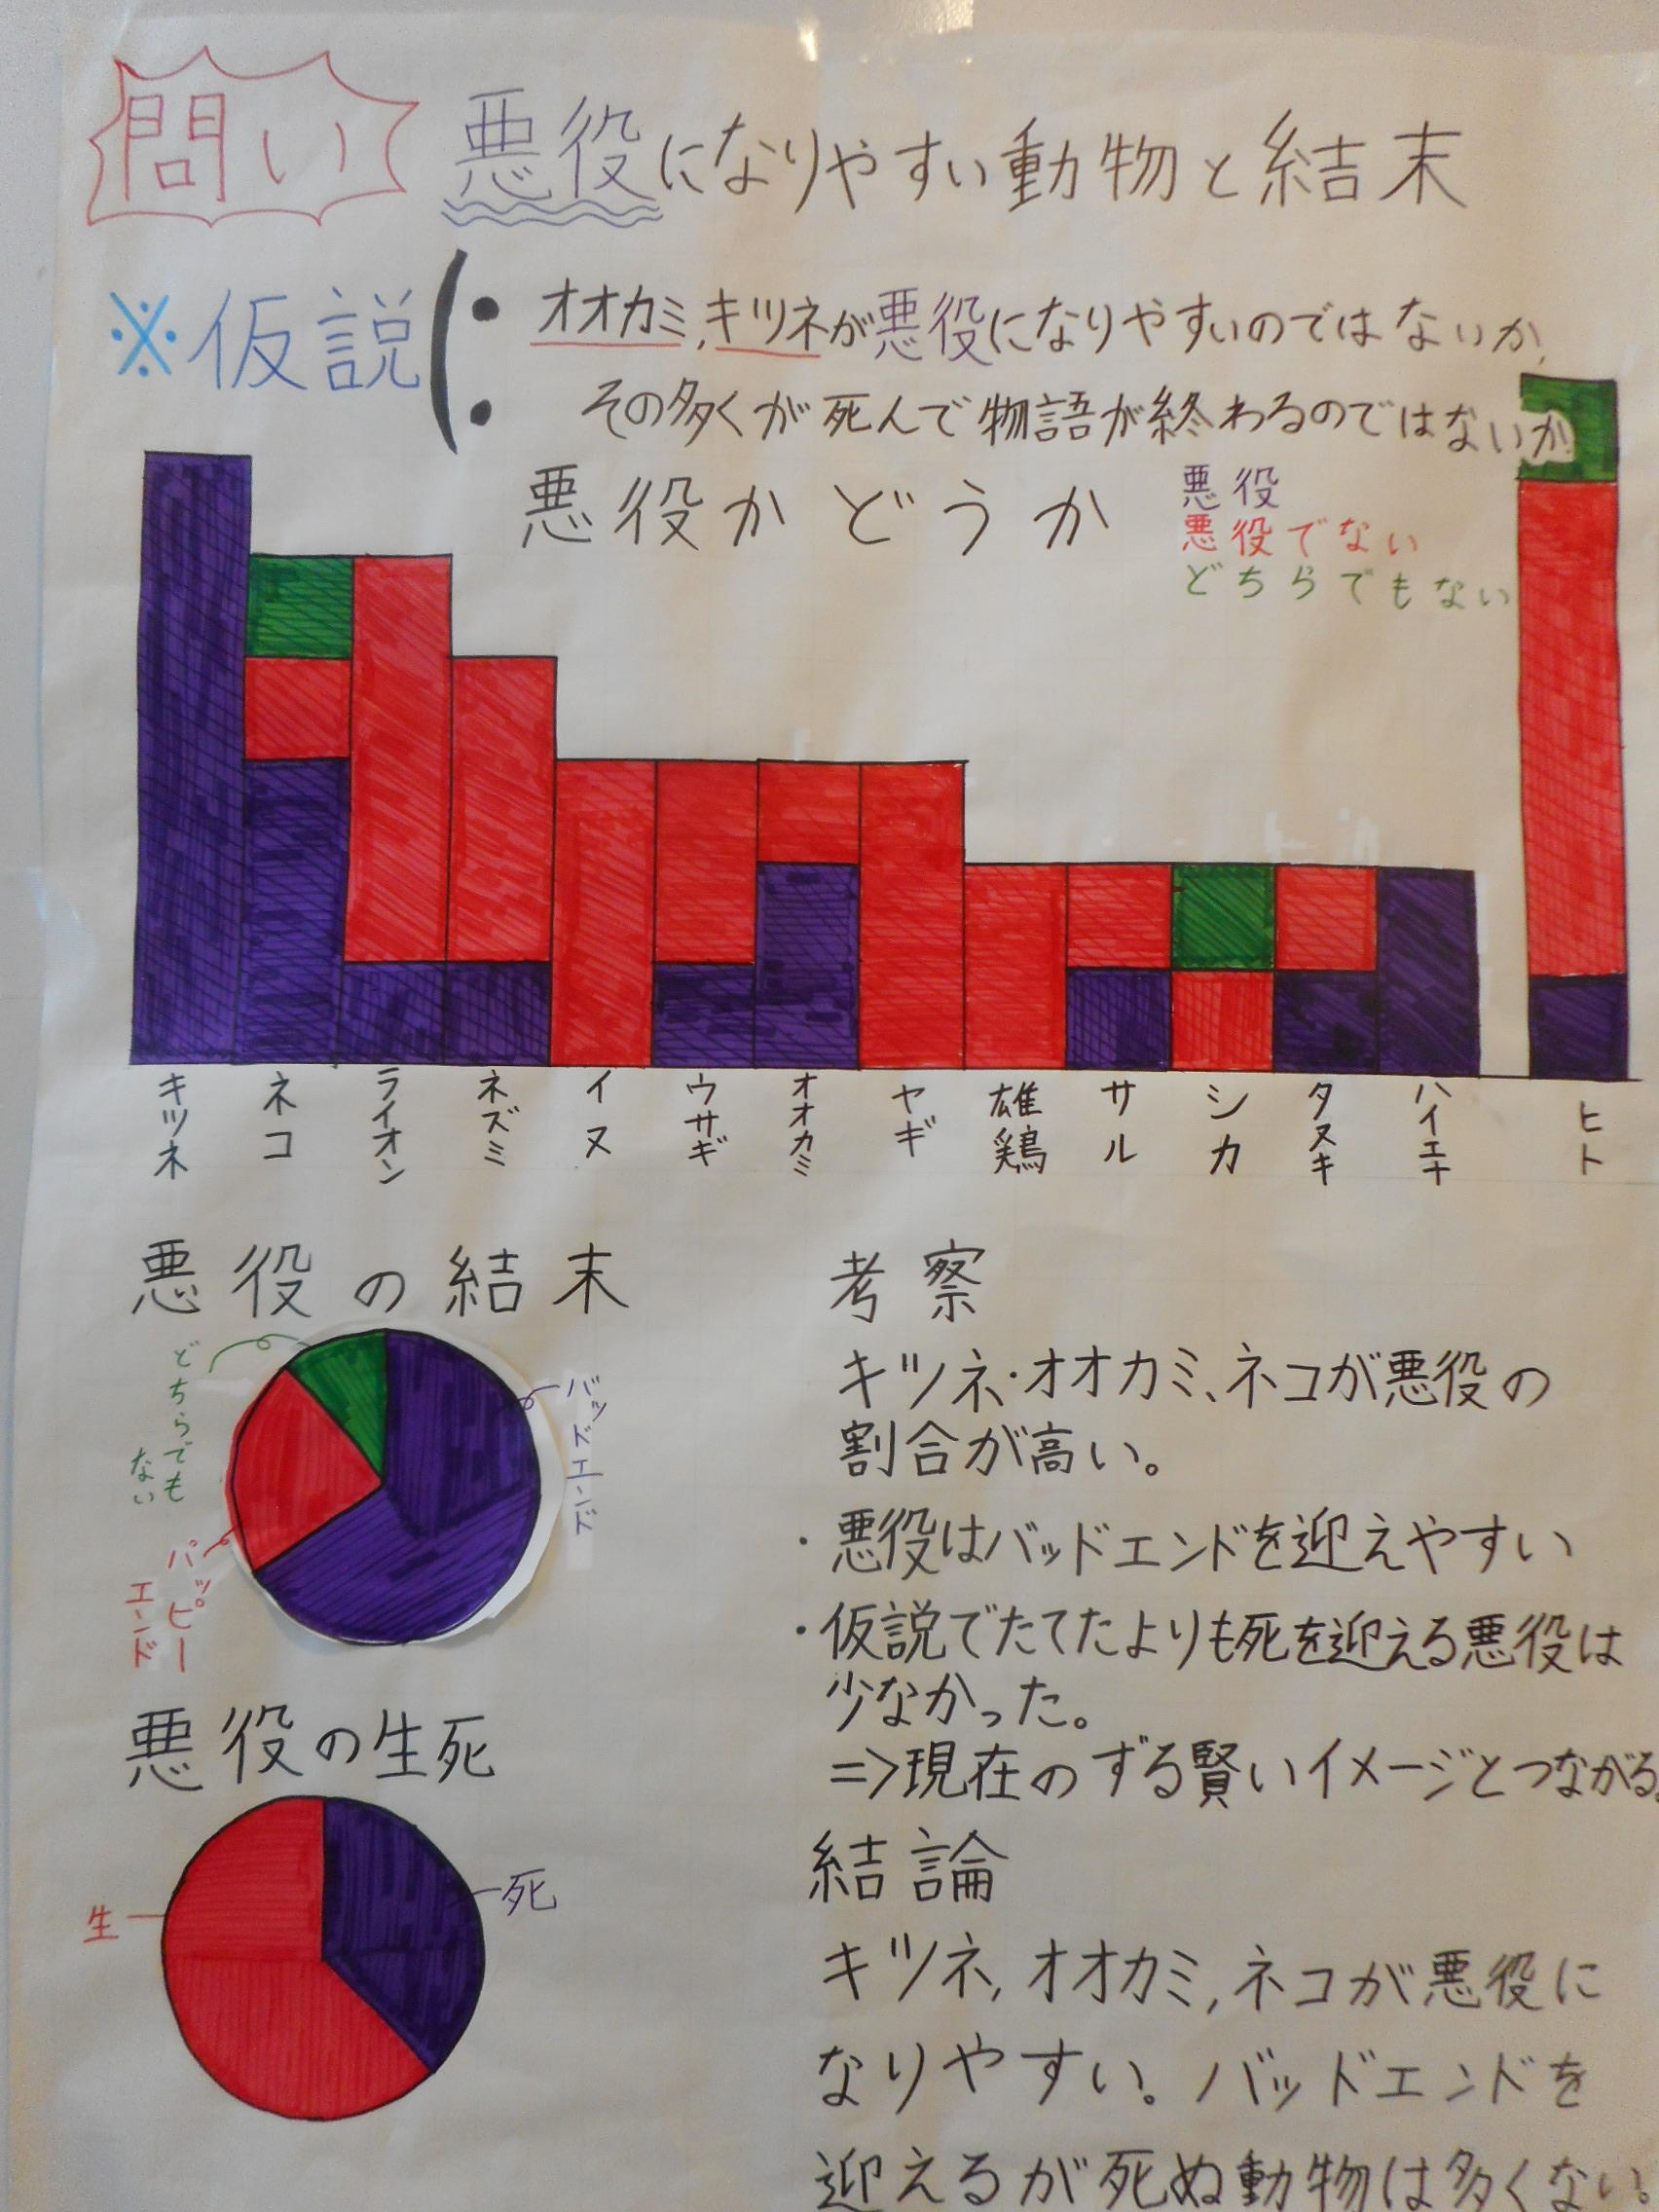 問い 悪役になりやすい動物と結末
※仮説(・オオカミ,キツネが悪役になりやすいのではないか,
・その多くが死んで物語が終わるのではないか
悪役かどうか
悪役
悪役でない
どちらでもない
キツネ
ネコ
ライオン
ネズミ
イヌ
ウサギ
オオカミ
ヤギ
雄鶏
サル
シカ
タヌキ
ハイエナ
ヒト
悪役の結末
どちらでも
ない
バッドエンド
ハッピー
エンド
悪役の生死
生
死
考察
キツネ・オオカミ、ネコが悪役の
割合が高い。
・悪役はバッドエンドを迎えやすい
・仮説でたてたよりも死を迎える悪役は
少なかった。
=>現在のずる賢いイメージとつながる。
結論
キツネ,オオカミ,ネコが悪役に
なりやすい。バッドエンドを
迎えるが死ぬ動物は多くない。